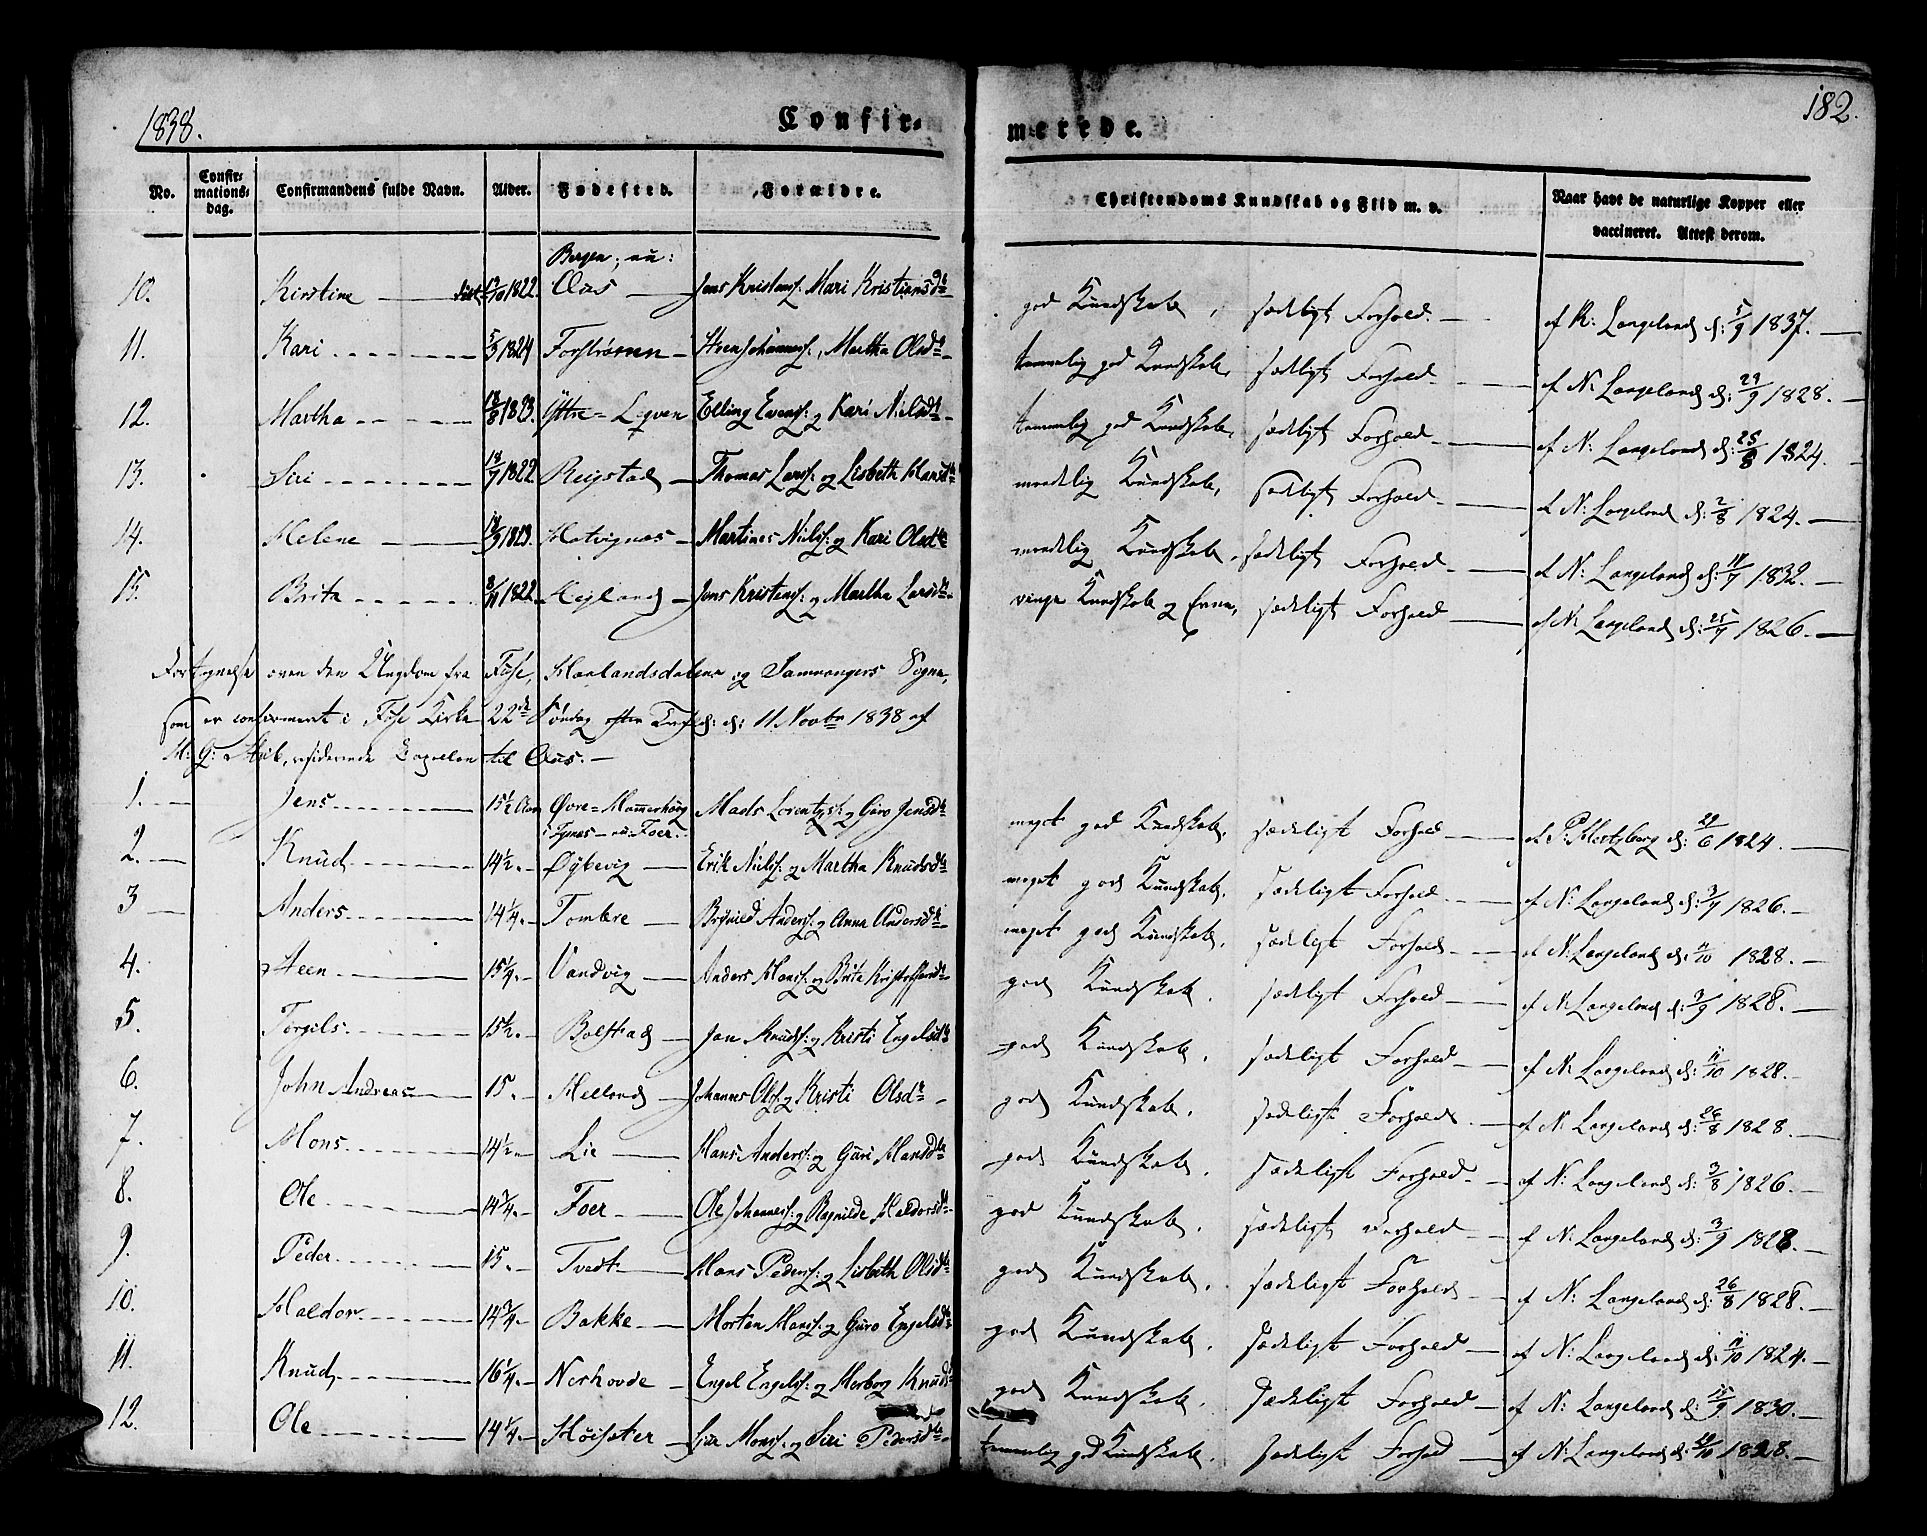 1838.
Confir-
merede.
182.
No.
Confir-
mations-
dag.
Confirmandens fulde Navn.
Alder.
Fødested.
Forældre.
Christendoms Kundskab og Flid m. v.
Naar havt de naturlige Kopper eller
vaccineret. Attest derom.
Bergen, nu:
10. Kirstine 1822. Oas Jens Kristens: Mari Kristiansd: god Kundskab, sædeligt Forhold. af R: Langeland d: 5/9 1837.
11. Kari 5/3 1824 Forstrønen Steen Johanness:, Martha Olsd: temmelig god Kundskab, sædeligt Forhold. af N: Langeland d: 29/9 1828.
12. Martha 18/8 1823. Yttre-Leqven Elling Evens: og Kari Nielsd: temmelig god Kundskab, sædeligt Forhold. af N: Langeland d: 25/8 1824.
13. Siri 18/7 1822 Reigstad Thomas Lars: og Lisbeth Hansd: maadelig Kundskab, sædeligt Forhold. af N: Langeland d: 2/8 1824.
14. Helene 1823. Hatvignæs Martines Niels: og Kari Olsd: maadelig Kundskab, sædeligt Forhold. af N: Langeland d: 11/7 1832.
15. Brita 8/11 1822. Hegland Jens Kristens: og Martha Larsd: ringe Kundskab og Evne, sædeligt Forhold af N: Langeland d: 25/7 1826.
Fortegnelse over den Ungdom fra Fuse, Haalandsdalens og Samnangers Sogne,
som er confirmeret i Fuse Kirke 22de Søndag efter Trefld: d: 11 Novbr 1838 af
M: G: residerende Capellan til Oas.
1. Jens 15 1/2 Aar Øvre-Hammerhoug Mads Lorentzs: og Guro Jensd: meget god Kundskab, sædeligt Forhold af P: Hertzberg d: 29/6 1824.
Tynæs nu: Foer.
2. Knud 14 1/2 Øykevig Erik Niels: og Martha Knudsd: meget god Kundskab, sædeligt Forhold af N: Langeland d: 3/7 1826.
3 Anders 14 1/4 Tombre Brynild Anders: og Anna Andersd: meget god Kundskab, sædeligt Forhold af N: Langeland d: 11/10 1828.
4. Steen 15 1/4 Vandvig Anders Hans: og Brita Kristoffersd: god Kundskab, sædeligt Forhold af N: Langeland d: 3/9 1828.
5. Torgils 15 1/2 Bolstad Jon Knuds: og Kristi Engelsd: god Kundskab, sædeligt Forhold af N: Langeland d: 11/10 1828.
6. John Andreas 15. Helland Johannes Ols: og Kristi Olsd: god Kundskab, sædeligt Forhold. af N: Langeland d: 26/8 1828.
7. Mons 14 1/2 Lie Hans Anders: og Guri Hansd: god Kundskab, sædeligt Forhold. af N: Langeland d: 3/8 1826.
8. Ole 14 3/4 Foer Ole Johanness: og Ragnilde Haldorsd: god Kundskab, sædeligt Forhold af N: Langeland d: 3/9 1828.
9. Peder 15. Tvedt Hans Peders: og Lisbeth Olsd: god Kundskab, sædeligt Forhold af N: Langeland d: 26/8 1828.
10. Haldor 14 3/4 Bakke Morten Hans: og Guro Engelsd: god Kundskab, sædeligt Forhold af N: Langeland d: 11/10 1824.
11. Knud 16 1/4 Nerhovde Engel Engels: og Herborg Knudsd: god Kundskab, sædeligt Forhold af N: Langeland d: 15/9 1830.
12. Ole 14 1/4 Høisæter Mons: og Siri Pedersd: temmelig god Kundskab, sædeligt Forhold af N: Langeland d: 1828.